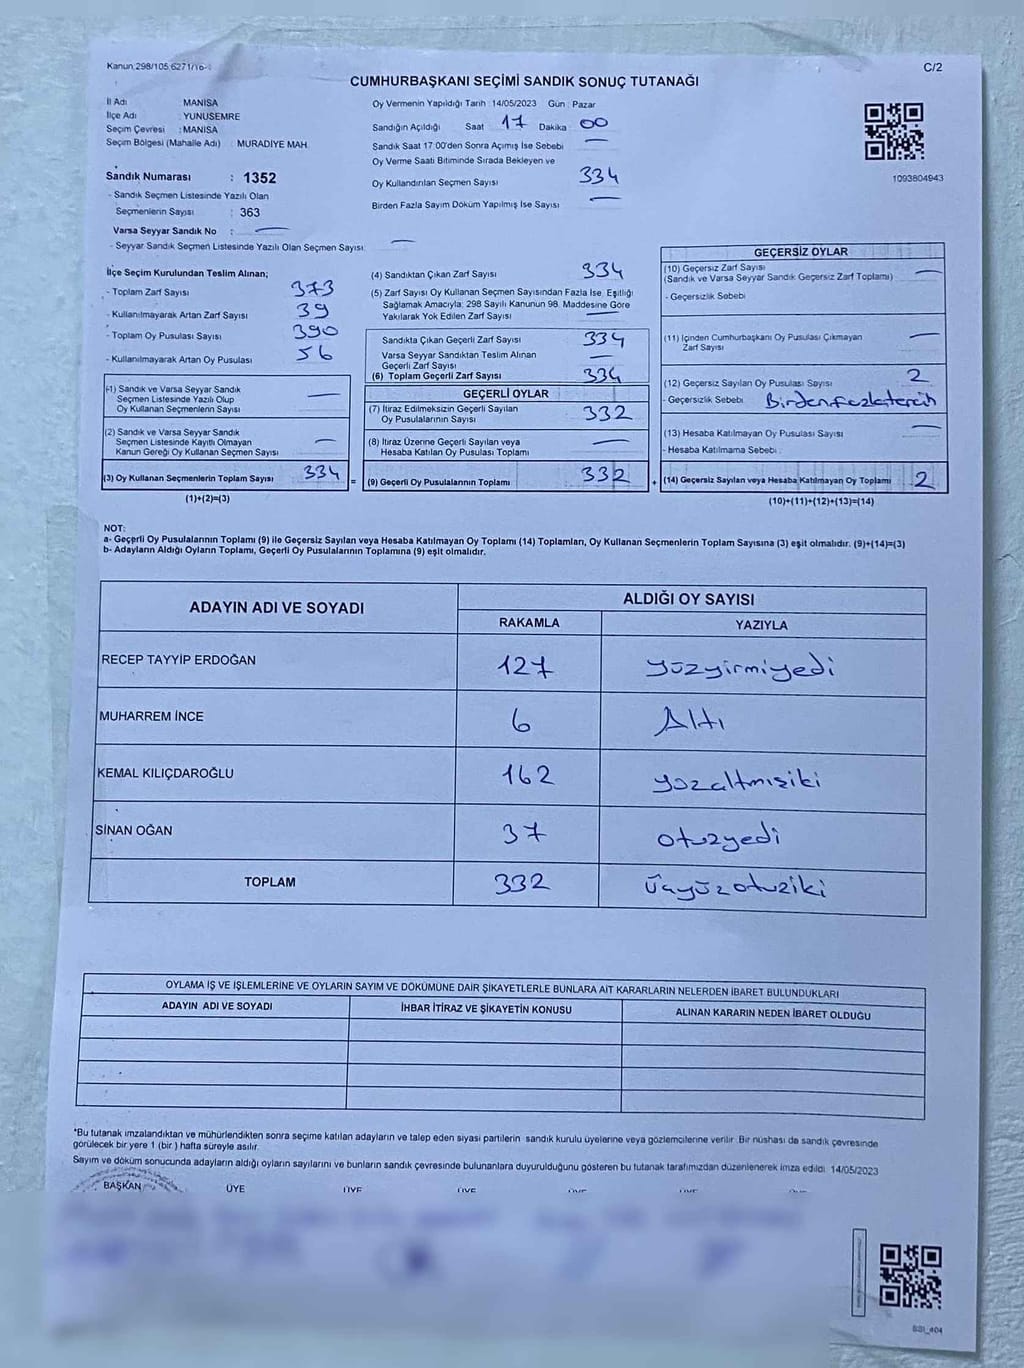 Kanun 298/105 6271/16-
C/2
CUMHURBAŞKANI SEÇİMİ SANDIK SONUÇ TUTANAĞI
İl Adı MANİSA
İlçe Adı : YUNUSEMRE
Seçim Çevresi : MANİSA
Seçim Bölgesi (Mahalle Adı) : MURADİYE MAH.
Sandık Numarası : 1352
- Sandık Seçmen Listesinde Yazılı Olan
Seçmenlerin Sayısı : 363
Varsa Seyyar Sandık No :
- Seyyar Sandık Seçmen Listesinde Yazılı Olan Seçmen Sayısı
Oy Vermenin Yapıldığı Tarih : 14/05/2023 Gün : Pazar
Sandığın Açıldığı Saat 17 Dakika : 00
Sandık Saat 17:00'den Sonra Açımış İse Sebebi
Oy Verme Saati Bitiminde Sırada Bekleyen ve
Oy Kullandırılan Seçmen Sayısı 334
Birden Fazla Sayım Döküm Yapılmış İse Sayısı
1093804943
İlçe Seçim Kurulundan Teslim Alınan;
- Toplam Zarf Sayısı 373
- Kullanılmayarak Artan Zarf Sayısı 39
- Toplam Oy Pusulası Sayısı 390
- Kullanılmayarak Artan Oy Pusulası 56
(1) Sandık ve Varsa Seyyar Sandık
Seçmen Listesinde Yazılı Olup
Oy Kullanan Seçmenlerin Sayısı
(2) Sandık ve Varsa Seyyar Sandık
Seçmen Listesinde Kayıtlı Olmayan
Kanun Gereği Oy Kullanan Seçmen Sayısı
(3) Oy Kullanan Seçmenlerin Toplam Sayısı 334 =
(1)+(2)=(3)
(4) Sandıktan Çıkan Zarf Sayısı 334
(5) Zarf Sayısı Oy Kullanan Seçmen Sayısından Fazla İse, Eşitliği
Sağlamak Amacıyla; 298 Sayılı Kanunun 98. Maddesine Göre
Yakılarak Yok Edilen Zarf Sayısı
Sandıkta Çıkan Geçerli Zarf Sayısı 334
Varsa Seyyar Sandıktan Teslim Alınan
Geçerli Zarf Sayısı
(6) Toplam Geçerli Zarf Sayısı 334
GEÇERLİ OYLAR
(7) İtiraz Edilmeksizin Geçerli Sayılan
Oy Pusulalarının Sayısı 332
(8) İtiraz Üzerine Geçerli Sayılan veya
Hesaba Katılan Oy Pusulası Toplamı
(9) Geçerli Oy Pusulalarının Toplamı 332 +
GEÇERSİZ OYLAR
(10) Geçersiz Zarf Sayısı
(Sandık ve Varsa Seyyar Sandık Geçersiz Zarf Toplamı)
- Geçersizlik Sebebi
(11) İçinden Cumhurbaşkanı Oy Pusulası Çıkmayan
Zarf Sayısı
(12) Geçersiz Sayılan Oy Pusulası Sayısı 2
- Geçersizlik Sebebi Birden fazla tercih
(13) Hesaba Katılmayan Oy Pusulası Sayısı
- Hesaba Katılmama Sebebi :
(14) Geçersiz Sayılan veya Hesaba Katılmayan Oy Toplamı 2
(10)+(11)+(12)+(13)=(14)
NOT:
a- Geçerli Oy Pusulalarının Toplamı (9) ile Geçersiz Sayılan veya Hesaba Katılmayan Oy Toplamı (14) Toplamları, Oy Kullanan Seçmenlerin Toplam Sayısına (3) eşit olmalıdır. (9)+(14)=(3)
b- Adayların Aldığı Oyların Toplamı, Geçerli Oy Pusulalarının Toplamına (9) eşit olmalıdır.
ADAYIN ADI VE SOYADI ALDIĞI OY SAYISI
RAKAMLA YAZIYLA
RECEP TAYYİP ERDOĞAN 127 yüzyirmiyedi
MUHARREM İNCE 6 Altı
KEMAL KILIÇDAROĞLU 162 yüzaltmışiki
SİNAN OĞAN 37 otuzyedi
TOPLAM 332 üçyüzotuziki
OYLAMA İŞ VE İŞLEMLERİNE VE OYLARIN SAYIM VE DÖKÜMÜNE DAİR ŞİKAYETLERLE BUNLARA AİT KARARLARIN NELERDEN İBARET BULUNDUKLARI
ADAYIN ADI VE SOYADI İHBAR İTİRAZ VE ŞİKAYETİN KONUSU ALINAN KARARIN NEDEN İBARET OLDUĞU
*Bu tutanak imzalandıktan ve mühürlendikten sonra seçime katılan adayların ve talep eden siyasi partilerin sandık kurulu üyelerine veya gözlemcilerine verilir. Bir nüshası da sandık çevresinde
görülecek bir yere 1 (bir ) hafta süreyle asılır.
Sayım ve döküm sonucunda adayların aldığı oyların sayılarını ve bunların sandık çevresinde bulunanlara duyurulduğunu gösteren bu tutanak tarafımızdan düzenlenerek imza edildi. 14/05/2023
BAŞKAN ÜYE ÜYE ÜYE ÜYE ÜYE